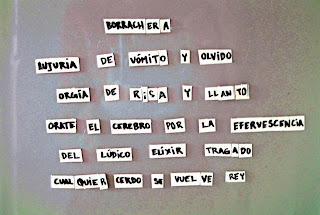 BORRACHERA
LUJURIA DE VÓMITO Y OLVIDO
ORGÍA DE RISA Y LLANTO
ORATE EL CEREBRO POR LA EFERVESCENCIA
DEL LÚDICO ELIXIR TRAGADO
CUALQUIER CERDO SE VUELVE REY